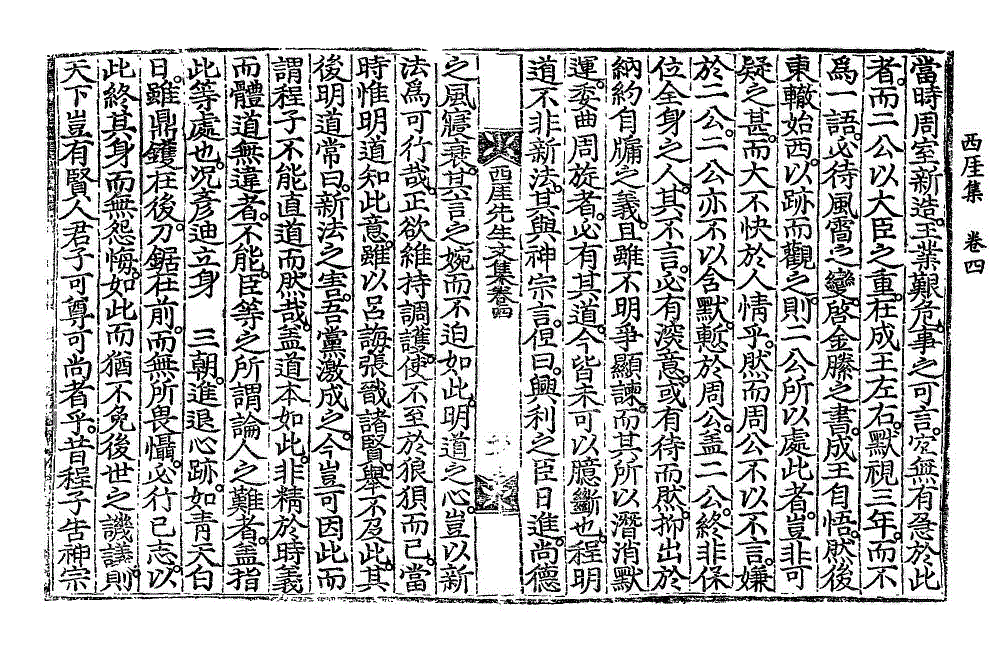 西厓集　卷四
當時周室新造。王業艱危。事之可言。宜無有急於此
者。而二公以大臣之重。在成王左右。默視三年。而不
爲一語。必待風雷之變。啓金縢之書。成王自悟。然後
東轍始西。以跡而觀之。則二公所以處此者。豈非可
疑之甚。而大不快於人情乎。然而周公不以不言。嫌
於二公。二公亦不以含默。慙於周公。盖二公。終非保
位全身之人。其不言。必有深意。或有待而然。抑出於
納約自牖之義。且雖不明爭顯諫。而其所以潛消默
運。委曲周旋者。必有其道。今皆未可以臆斷也。程明
道不非新法。其與神宗言。但曰。興利之臣日進。尙德
西厓先生文集卷四
之風寢衰。其言之婉而不迫如此。明道之心。豈以新
法爲可行哉。正欲維持調護。使不至於狼狽而已。當
時惟明道知此意。雖以呂誨張戩諸賢。擧不及此。其
後明道常曰。新法之害。吾黨激成之。今豈可因此而
謂程子不能直道而然哉。盖道本如此。非精於時義
而體道無違者。不能。臣等之所謂論人之難者。盖指
此等處也。况彦迪立身　三朝。進退心跡。如靑天白
日。雖鼎鑊在後。刀鋸在前。而無所畏懾。必行己志。以
此終其身而無怨悔。如此而猶不免後世之譏議。則
天下豈有賢人君子可尊可尙者乎。昔程子告神宗